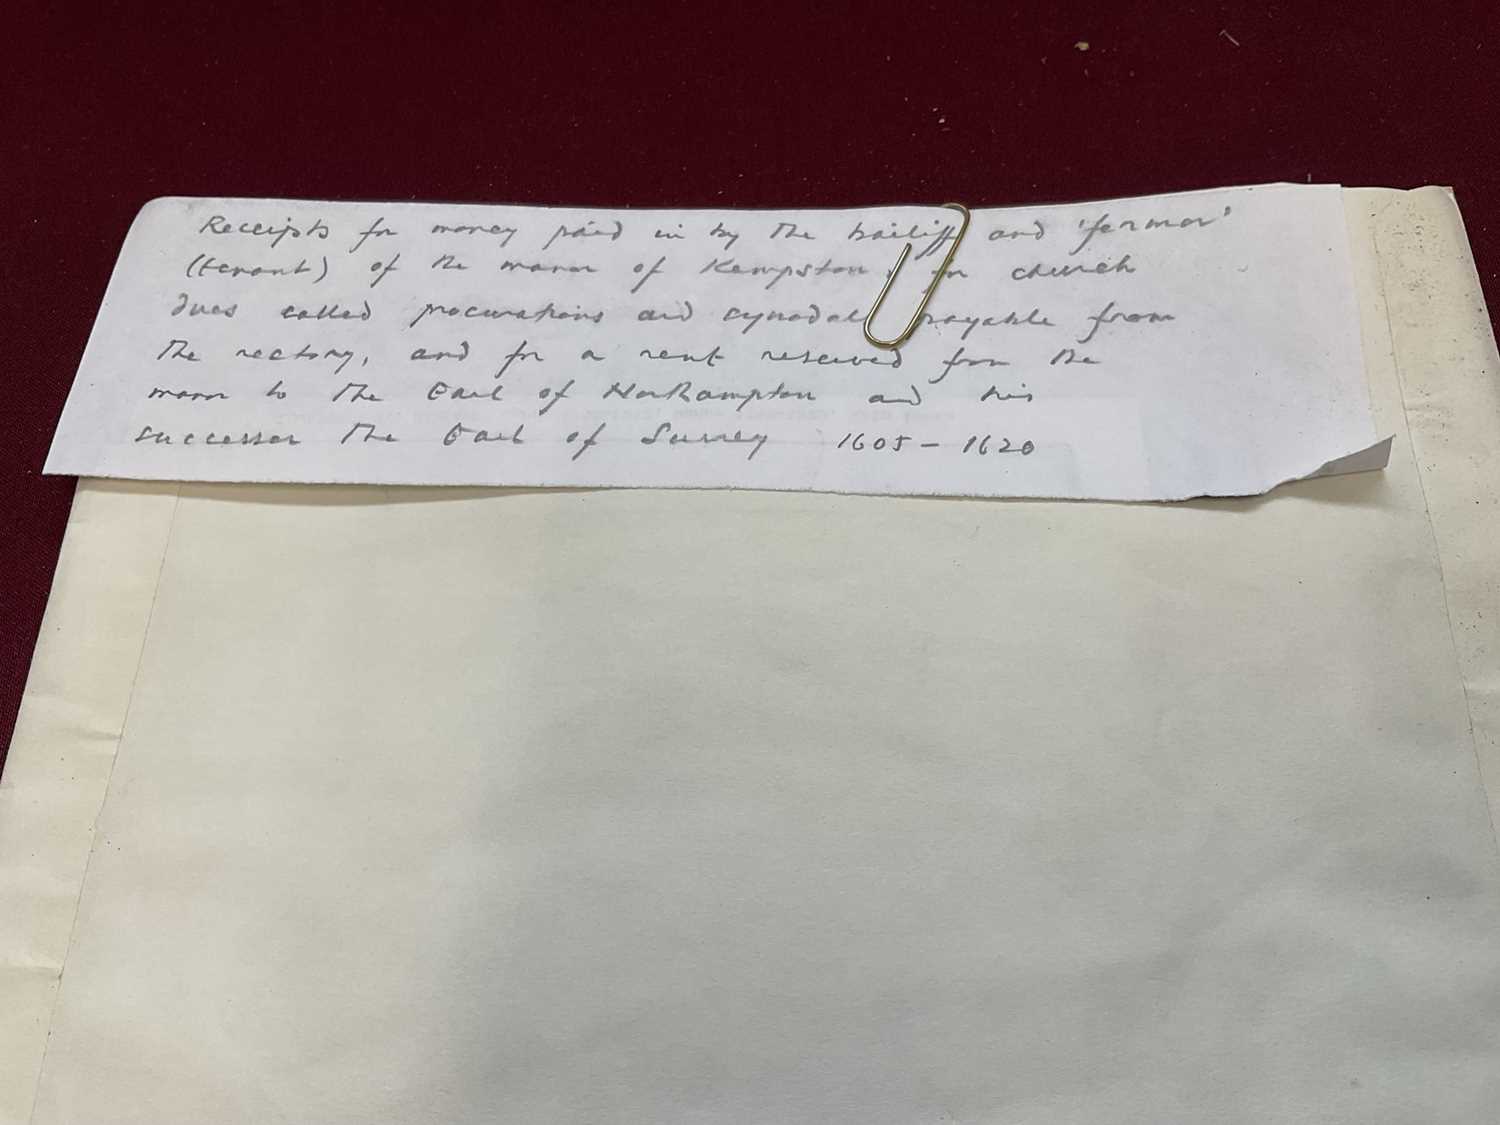 Receipts for money paid in by the bailiff and 'fermor'
(tenant) of the manor of Kempston, for church
dues called procurations and synodals payable from
the rectory, and for a rent reserved from the
manor to the Earl of Northampton and his
successor the Earl of Surrey 1605 - 1620